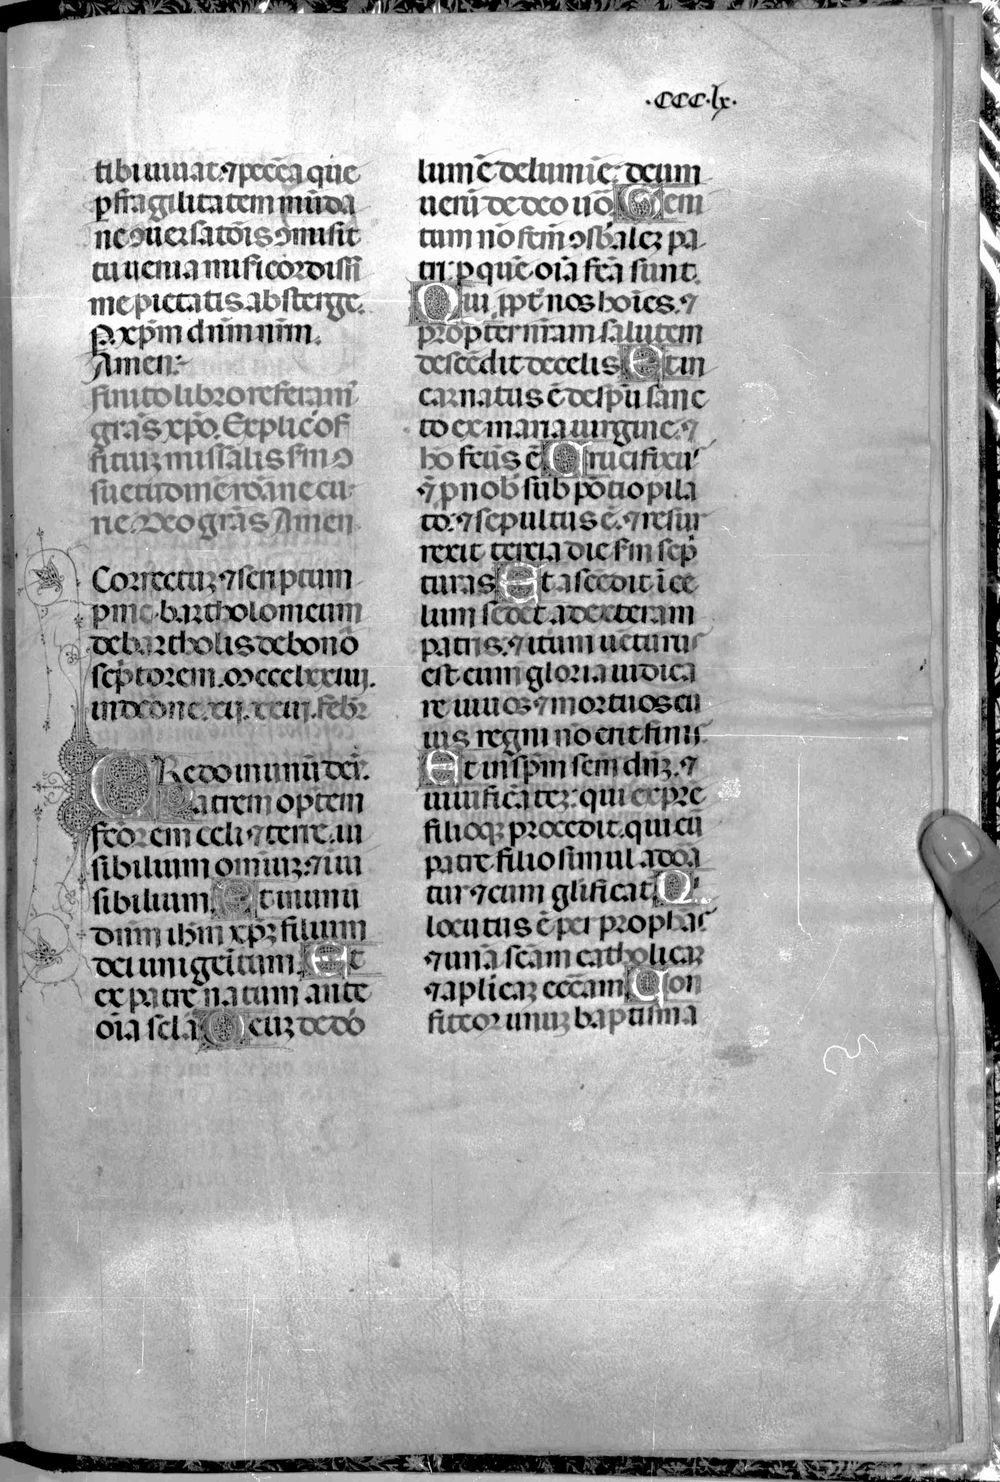 ·CCC·lx·
tibi uiuat. ⁊ pccc̄a que
ꝑ fragilitatem mūda
ne ꝯuersatōis ꝯmisit
tu uenia misicordissi
me pietatis absterge.
P. xp̄m dn̄m nr̄m.
Amen:
finito libro referam᷑
grās xp̄o. Explic̄ of
fitiuz missalis sm̄ ꝯ
suetudinē rōane cu
rie. Deo grās Amen
Correctuz ⁊ scriptum
p me bartholomeum
de bartholis de bonō
scp̄torem. M ccclxxiiij.
indcōne. xij. xxiij. febr
CRedo in unū deū.
Patrem opt̄em
fcōrem celi ⁊ terre. ui
sibilium omniuz. ⁊ inui
sibilium. Et in unū
dn̄m ih̄m xp̄ꝫ filium
dei unigeītum. Et
ex patre natum ante
oīa scl̄a Deuz de dō
lum̄ē de lumīē. deum
uerū de deo uō Geni
tum nō fcm̄ ꝯsb̄alez pa
tri: ꝑ quē oīa fcā sunt.
Qui ꝓpt̄ nos hoīes. ⁊
propter nr̄am salutem
descēdit de celis Et in
carnatus ē de sp̄u sanc
to ex maria uirgine. ⁊
hō fcūs ē Crucifixus
⁊̄ p nob̄ sub pōtio pila
to. ⁊ sepultus ē. ⁊ resur
rexit tertia die sm̄ scp̄
turas Et ascēdit ī ce
lum sedet ad exteram
patris. ⁊ itum uenturus
est cum gloria iudica
re uiuos ⁊ mortuos cu
ius regni nō erit finis.
Et in sp̄m scm̄ dn̄ꝫ. ⁊
uiuificātez: qui ex pre
filioqꝫ procedit. qui cū
patre filio simul adōa
tur ⁊ cum glificat᷑ Qi
locutus ē per prophās
⁊ unā scām catholicaꝫ
⁊ aplicaꝫ ecc̄am Con
fiteor unuꝫ baptisma